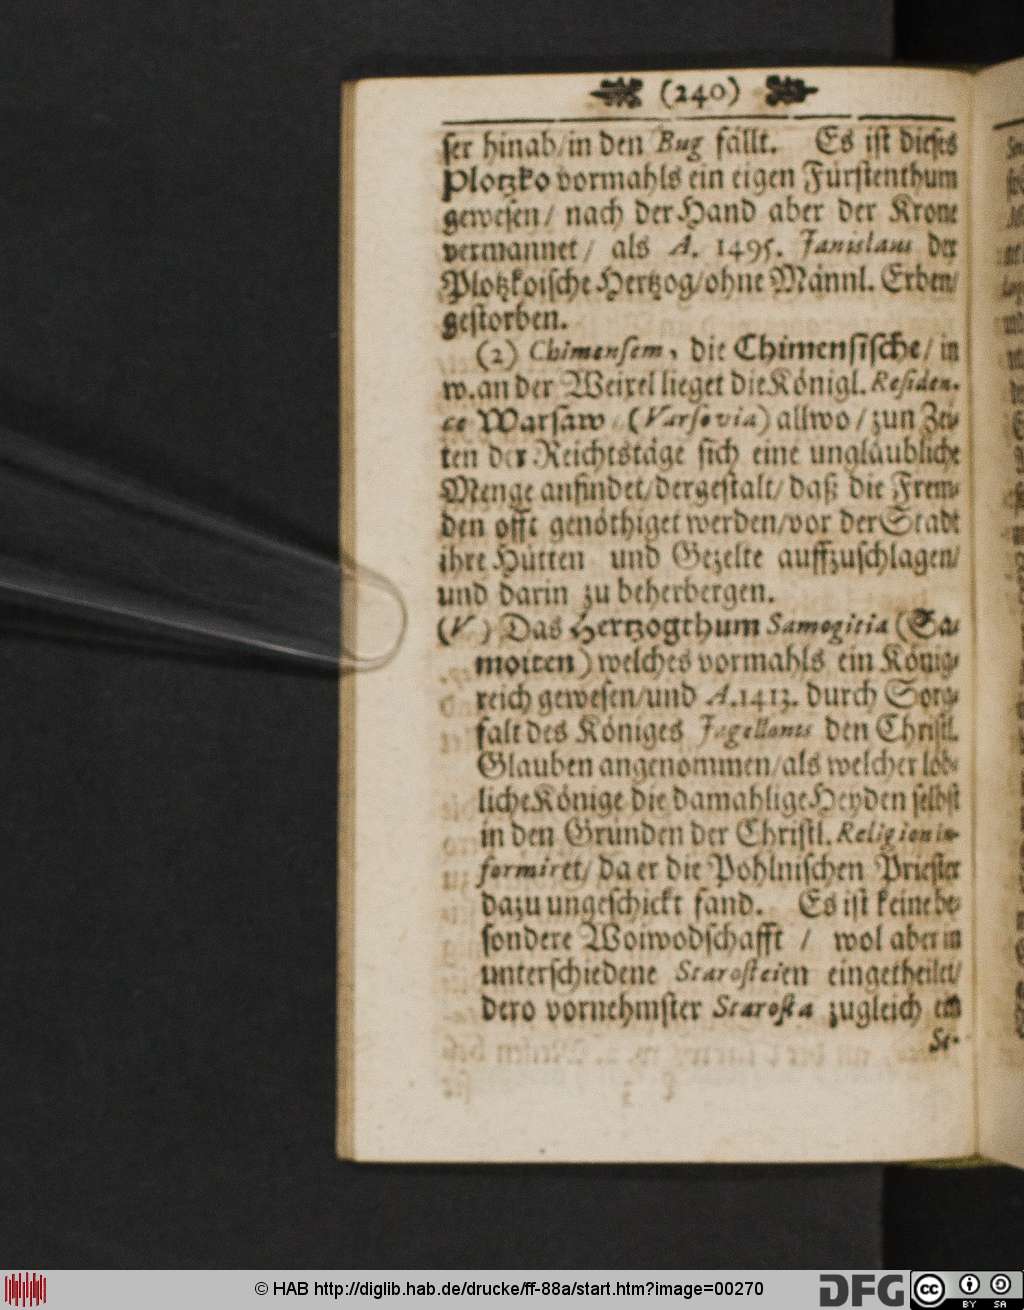 (240)
ser hinab/in den Bug fällt. Es ist dieses
Plotzko vormahls ein eigen Fürstenthum
gewesen/ nach der Hand aber der Krone
vermannet/ als A. 1495. Janislaus der
Plotzkoische Hertzog/ohne Männl. Erben/
gestorben.
(2) Chimensem, die Chimensische/ in
w. an der Weixel lieget die Königl. Residen-
ce Warsaw (Varsovia) allwo/ zun Zei-
ten der Reichstäge sich eine unglaubliche
Menge anfindet/dergestalt/ daß die Frem-
den offt genöthiget werden/vor der Stadt
ihre Hütten und Gezelte auffzuschlagen/
und darin zu beherbergen.
(V) Das Hertzogthum Samogitia (Sa-
moiten) welches vormahls ein König-
reich gewesen/und A. 1413. durch Sorg-
falt des Königes Jagellonis den Christl.
Glauben angenommen/als welcher löb-
liche Könige die damahlige Heyden selbst
in den Gründen der Christl. Religion in-
formiret/ da er die Pohlnischen Priester
dazu ungeschickt fand. Es ist keine be-
sondere Woiwodschafft / wol aber in
unterschiedene Starosteien eingetheilet/
dero vornehmster Starosta zugleich ein
Se-
© HAB http://diglib.hab.de/drucke/ff-88a/start.htm?image=00270
DFG
cc
BY SA